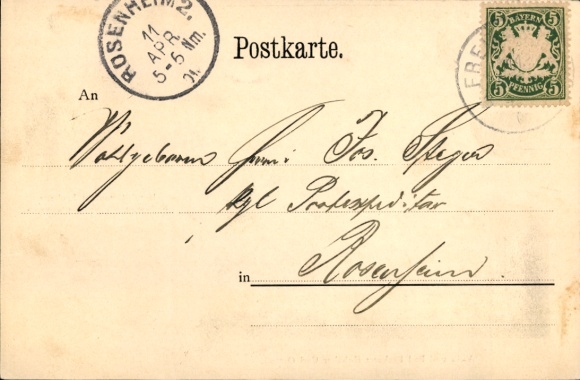 ROSENHEIM 2.
11
APR.
5-6 Nm.
01.
Postkarte.
5 BAYERN 5
5 PFENNIG 5
FRE
An
Wohlgeboren Herrn Jos. Steger
kgl Postexpeditor
in Rosenheim.